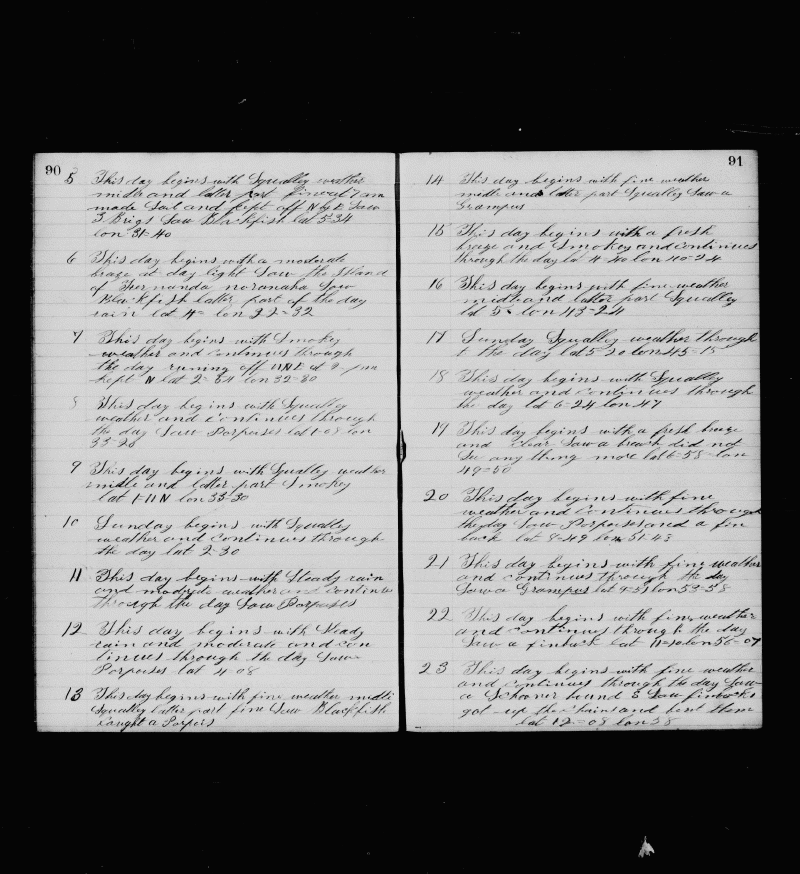 90
5 This day begins with Squalley weather
midle and latter part fine at 7 am
made Sail and kept off N by E Saw
3 Brigs Saw Blackfish lat 5=34
lon 31=40
6 This day begins with a moderate
braze at day light Saw the Island
of Fernanda noranaha Saw
Blackfish latter part of the day
rain lat 4= lon 32=32
7 This day begins with Smokey
weather and continues through
the day runing off NNE at pm
kept N lat 2=54 lon 32=50
8 This day begins with Squalley
weather and continues through
the day Saw Porpuses lat 1=08 lon
33=26
9 This day begins with Squalley weather
midle and latter part Smokey
lat 1=11 N lon 33=30
10 Sunday begins with Squalley
weather and continues through
the day lat 2=30
11 This day begins with Steady rain
and moderate weather and continues
through the day Saw Porpuses
12 This day begins with Steady
rain and moderate and con
tinues through the day Saw
Porpuses lat 4=08
13 This day begins with fine weather midle
Squalley latter part fine Saw Blackfish
caught a Porpois
91
14 This day begins with fine weather
midle and latter part Squalley Saw a
Grampus
15 This day begins with a fresh
braze and Smokey and continues
through the day lat 4=40 lon 40=24
16 This day begins with fine weather
midle and latter part Squalley
lat 5 lon 43=24
17 Sunday Squalley weather through
t the day lat 5=20 lon 45=15
18 This day begins with Squalley
weather and continues through
the day lat 6=24 lon 47
19 This day begins with a fresh braze
and clear Saw a breach did not
See any thing more lat 6=58 lon
49=50
20 This day begins with fine
weather and continues through
the day Saw Porpuses and a fin
back lat 8=49 lon 51=43
21 This day begins with fine weather
and continues through the day
Saw a Grampus lat 9=51 lon 53=58
22 This day begins with fine weather
and continues through the day
Saw a finback lat 11=20 lon 56=07
23 This day begins with fine weather
and continues through the day Saw
a Schooner bound S Saw finbacks
got up the Chains and bent them
lat 12=08 lon 58